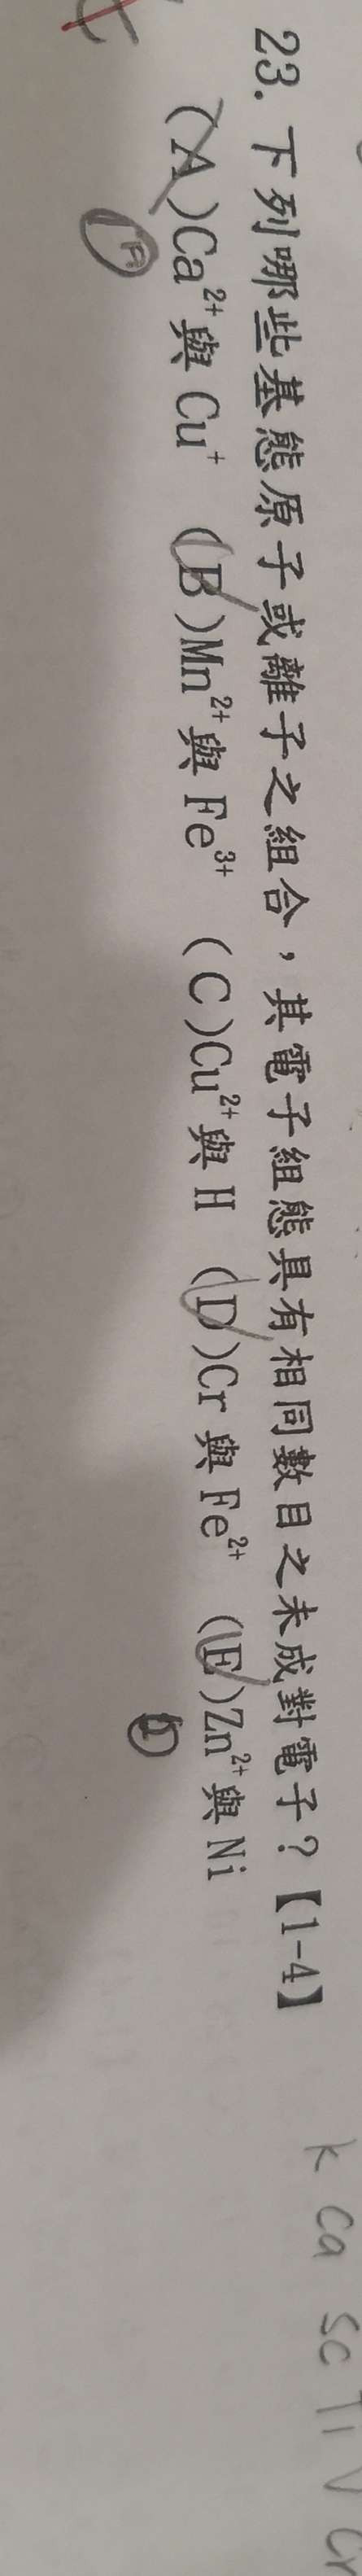 23. 下列哪些基態原子或離子之組合，其電子組態具有相同數目之未成對電子？【1-4】
(A)Ca²⁺與 Cu⁺ (B)Mn²⁺與 Fe³⁺ (C)Cu²⁺與 H (D)Cr 與 Fe²⁺ (E)Zn²⁺與 Ni
A
K Ca Sc Ti V Cr